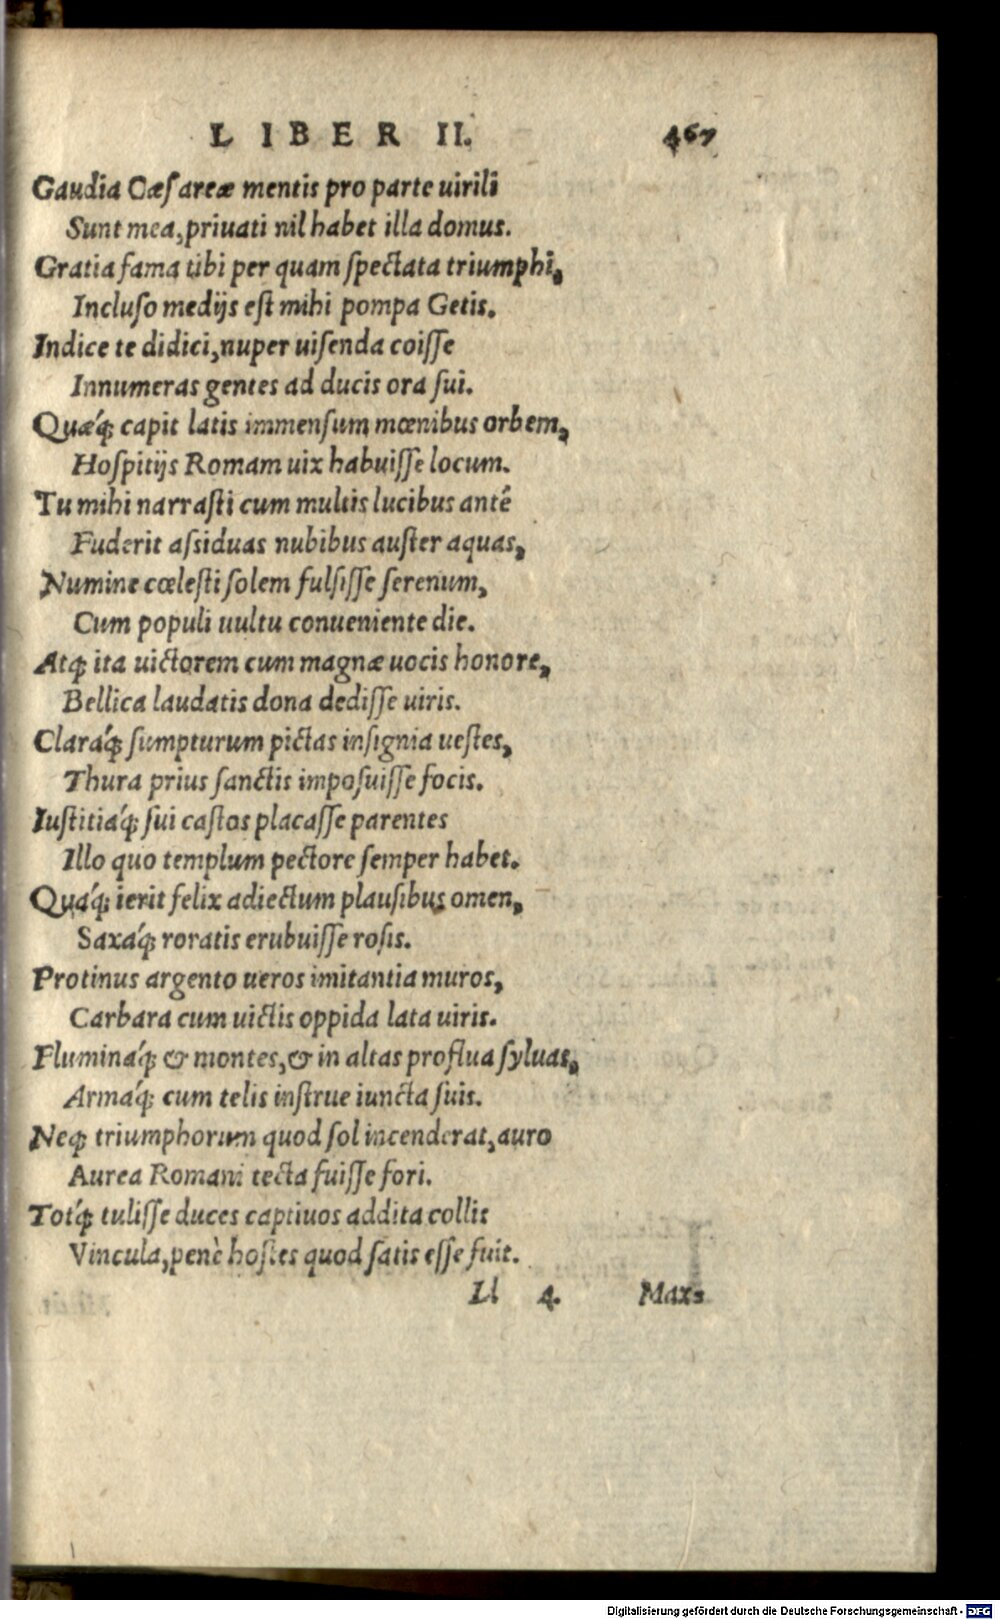 LIBER II. 467
Gaudia Cæſareæ mentis pro parte uirili
Sunt mea, priuati nil habet illa domus.
Gratia fama tibi per quam ſpectata triumphi,
Incluſo medijs eſt mihi pompa Getis.
Indice te didici, nuper uiſenda coiſſe
Innumeras gentes ad ducis ora ſui.
Quǽq; capit latis immenſum mœnibus orbem,
Hoſpitijs Romam uix habuiſſe locum.
Tu mihi narraſti cum multis lucibus antè
Fuderit aſsiduas nubibus auſter aquas,
Numine cœleſti ſolem fulſiſſe ſerenum,
Cum populi uultu conueniente die.
Atq; ita uictorem cum magnæ uocis honore,
Bellica laudatis dona dediſſe uiris.
Claráq; ſumpturum pictas inſignia ueſtes,
Thura prius ſanctis impoſuiſſe focis.
Iuſtitiáq; ſui caſtos placaſſe parentes
Illo quo templum pectore ſemper habet.
Quáq; ierit felix adiectum plauſibus omen,
Saxáq; roratis erubuiſſe roſis.
Protinus argento ueros imitantia muros,
Carbara cum uictis oppida lata uiris.
Flumináq; & montes, & in altas proflua ſyluas,
Armáq; cum telis inſtrue iuncta ſuis.
Neq; triumphorum quod ſol incenderat, auro
Aurea Romani tecta fuiſſe fori.
Totq́; tuliſſe duces captiuos addita collis
Vincula, penè hoſtes quod ſatis eſſe fuit.
Ll 4. Maxs